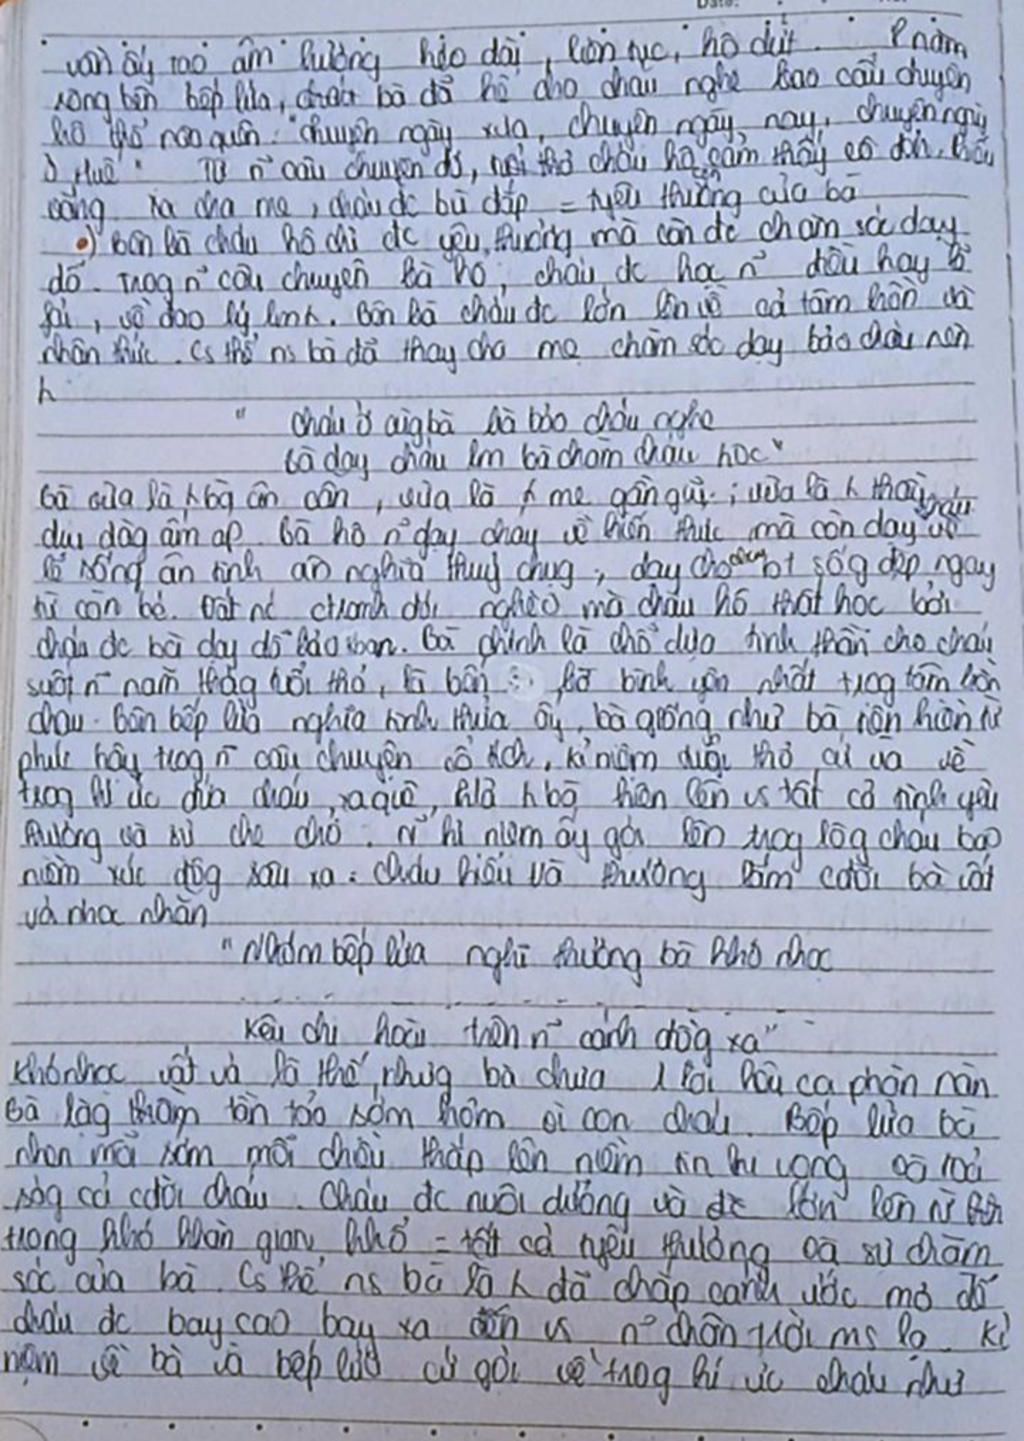 vần ấy tạo âm hưởng kéo dài, liên tục, hô dứt. P nằm
song bên bếp lửa, bà đã kể cho cháu nghe bao câu chuyện
hô thể nào quên "chuyện ngày xưa, chuyện ngày nay, chuyện ngày
ở Huế" Từ n~ câu chuyện đó, tuổi thơ cháu hô cảm thấy cô đơn,
vắng xa cha mẹ, cháu đc bù đắp = tyêu thương của bà
Bên bà cháu hô chỉ đc yêu thương mà còn đc chăm sóc dạy
dỗ. Trog n~ câu chuyện bà kể, cháu đc học n~ điều hay lẽ
fải, về đạo lý lm h. Bên bà cháu đc lớn lên về cả tâm hồn và
nhận thức. Cs thể ns bà đã thay cha mẹ chăm sóc dạy bảo cháu nên
h
" cháu ở cùg bà bà bảo cháu nghe
bà dạy cháu lm bà chăm cháu học"
Bà vừa là h bà ân cần, vừa là h mẹ gần gũi; vừa là h thầy
dịu dàg ấm áp. Bà hô n~ dạy cháu về kiến thức mà còn dạy về
lẽ sống ân tình ân nghĩa thuỷ chug, dạy cho cháu bt sốg đẹp ngay
từ còn bé. Đất nc ctranh đói nghèo mà cháu hô thất học bởi
cháu đc bà dạy dỗ bảo ban. Bà chính là chỗ dựa tinh thần cho cháu
suốt n~ năm thág tuổi thơ, là bến bờ bình yên nhất trog tâm hồn
cháu. Bên bếp lửa nghĩa tình thủa ấy, bà giống như bà tiên hiền từ
phúc hậu trog n~ câu chuyện cổ tích, kỉ niệm tuổi thơ cứ ùa về
trog kí ức đứa cháu xa quê, h bà hiện lên vs tất cả tình yêu
thương và sự che chở. n~ kỉ niệm ấy gợi lên trog lòg cháu bao
niềm xúc độg sâu xa: cháu hiểu và thương lắm cđời bà vất
vả nhọc nhằn
"Nhóm bếp lửa nghĩ thương bà khó nhọc
. . . . . . . . . . . .
Kêu chi hoài trên n~ cánh đồg xa"
Khó nhọc vất vả là thế, nhưg bà chưa 1 lời kêu ca phàn nàn
Bà lặg thầm tần tảo sớm hôm vì con cháu. Bếp lửa bà
nhen mỗi sớm mỗi chiều thắp lên niềm tin hi vọng và toả
ság cả cđời cháu. Cháu đc nuôi dưỡng và đc lớn lên từ
trong khó khăn gian khổ = tất cả tyêu thương và sự chăm
sóc của bà. Cs thể ns bà là h đã chắp cánh ước mơ để
cháu đc bay cao bay xa đến vs n~ chân trời ms lạ. Kỉ
niệm về bà và bếp lửa cứ gợi về trog kí ức cháu như